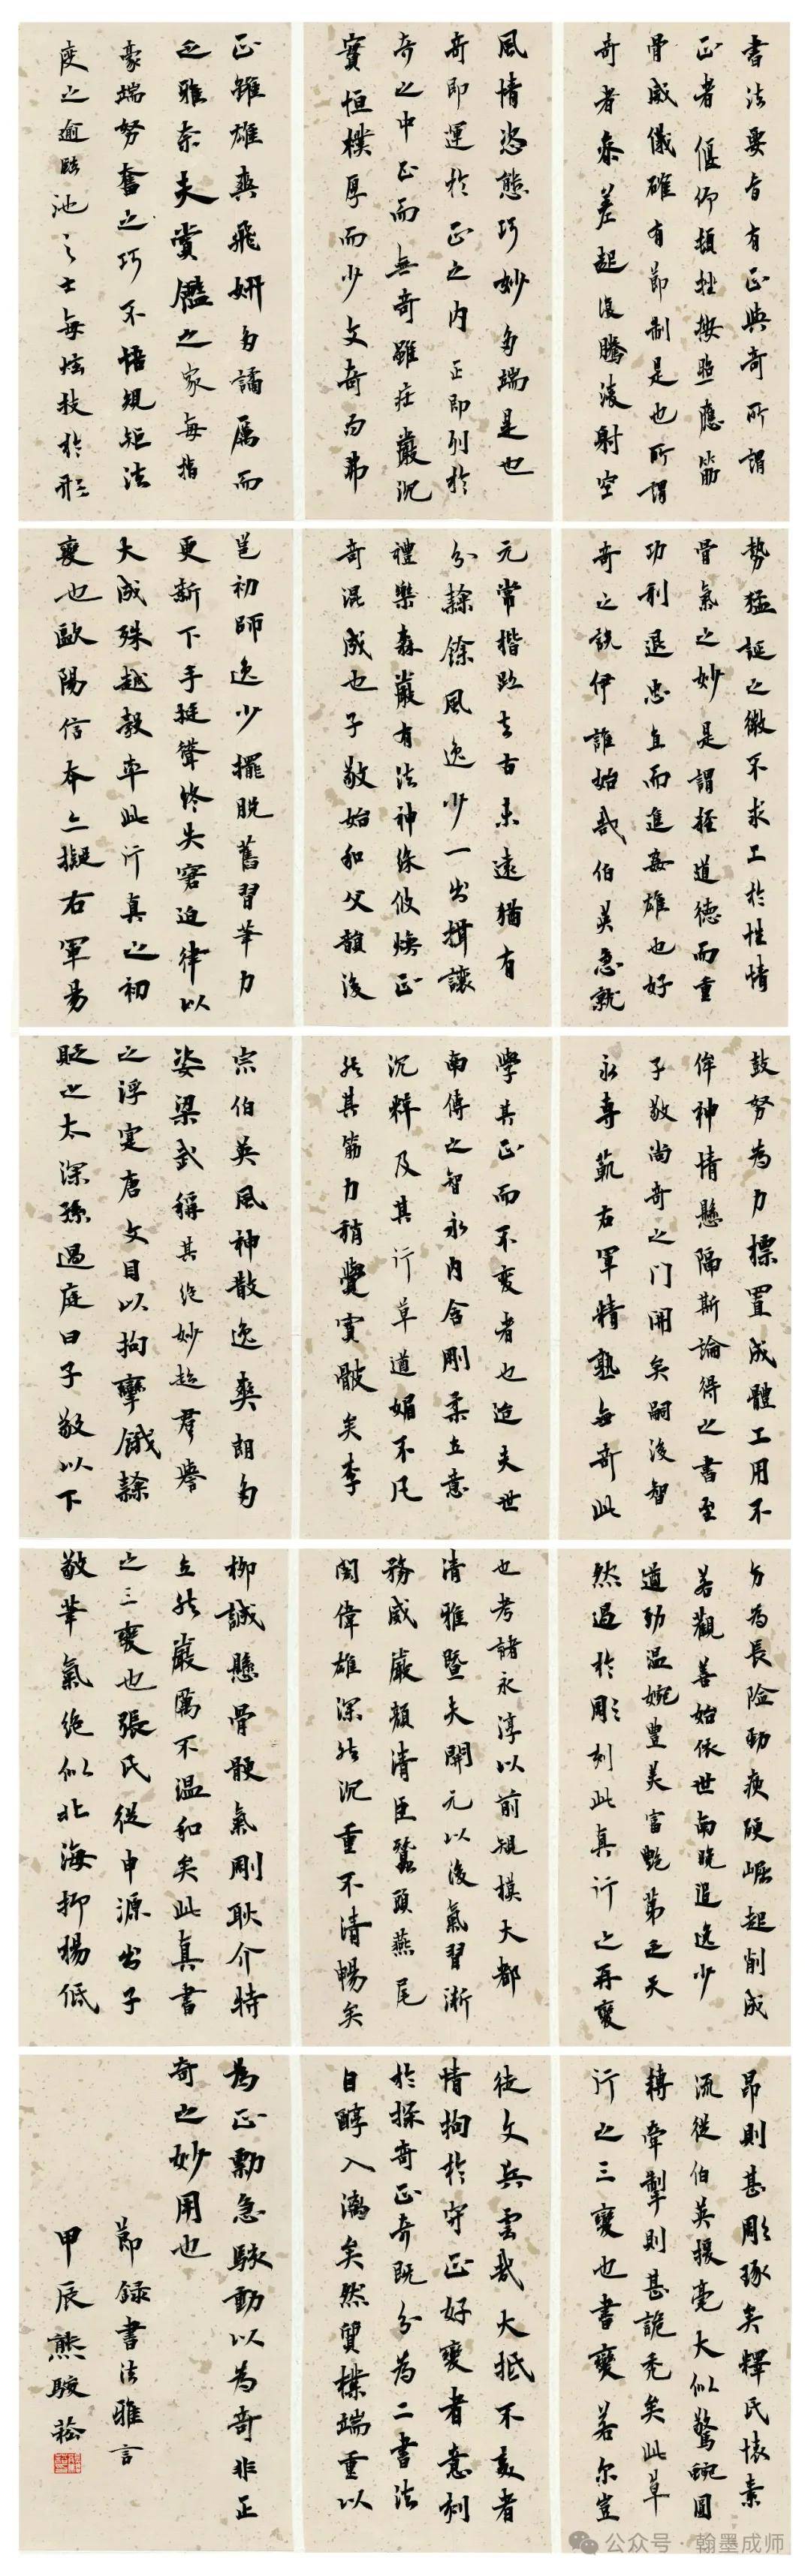 書法要旨有正與奇所謂
正者偃仰頓挫按照應筋
骨威儀確有節制是也所謂
奇者參差起復騰凌射空
風情恣態巧妙多端是也
奇即運於正之內正即列於
奇之中正而無奇雖莊嚴沉
實恒樸厚而少文奇而弗
正雖雄爽飛妍多譎厲而
乏雅奈夫賞鑑之家每指
豪端努奮之巧不悟規矩法
度之逾臨池之士每炫技於形
勢猛誕之微不求工於性情
骨氣之妙是謂輕道德而重
功利退忠直而進姦雄也好
奇之說伊誰始哉伯英急就
元常揩跡去古未遠猶有
分隸餘風逸少一出揖讓
禮樂森嚴有法神彩攸煥正
奇混成也子敬始和父韻後
豈初師逸少擺脫舊習筆力
更新下手挺聳終失窘迫律以
大成殊越彀率此行真之初
變也歐陽信本亦擬右軍易
鼓努為力標置成體工用不
侔神情懸隔斯論得之書至
子敬尚奇之門開矣嗣後智
永專範右軍精熟無奇此
學其正而不變者也迨夫世
南傳之智永內含剛柔立意
沉粹及其行草遒媚不凡
然其筋力稍覺寬骳矣李
宗伯英風神散逸爽朗多
姿梁武稱其絕妙超群譽
之浮寔唐文目以拘攣餓隸
貶之太深孫過庭曰子敬以下
方為長險勁瘦硬崛起削成
若觀善始依世南晚追逸少
遒勁溫婉豐美富艷第乏天
然過於彫刻此真行之再變
也考諸永淳以前規模大都
清雅暨夫開元以後氣習漸
務威嚴顏清臣蠶頭燕尾
閎偉雄深然沉重不清暢矣
柳誠懸骨骾氣剛耿介特
立然嚴厲不溫和矣此真書
之三變也張氏從申源出子
敬筆氣絕似北海抑揚低
昂則甚彫琢矣釋氏懷素
流從伯英援毫大似驚蛇圓
轉牽掣則甚詭禿矣此草
行之三變也書變若尔豈
徒文兵雲哉大抵不變者
情拘於守正好變者意刻
於探奇正奇既分為二書法
自醇入漓矣然質樸端重以
為正勦急駭動以為奇非正
奇之妙用也
節錄書法雅言
甲辰熊駿菘
公众号·翰墨成师